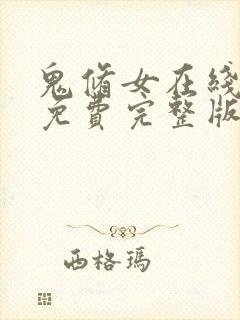 鬼脩女在綫
免費完整版
西格瑪